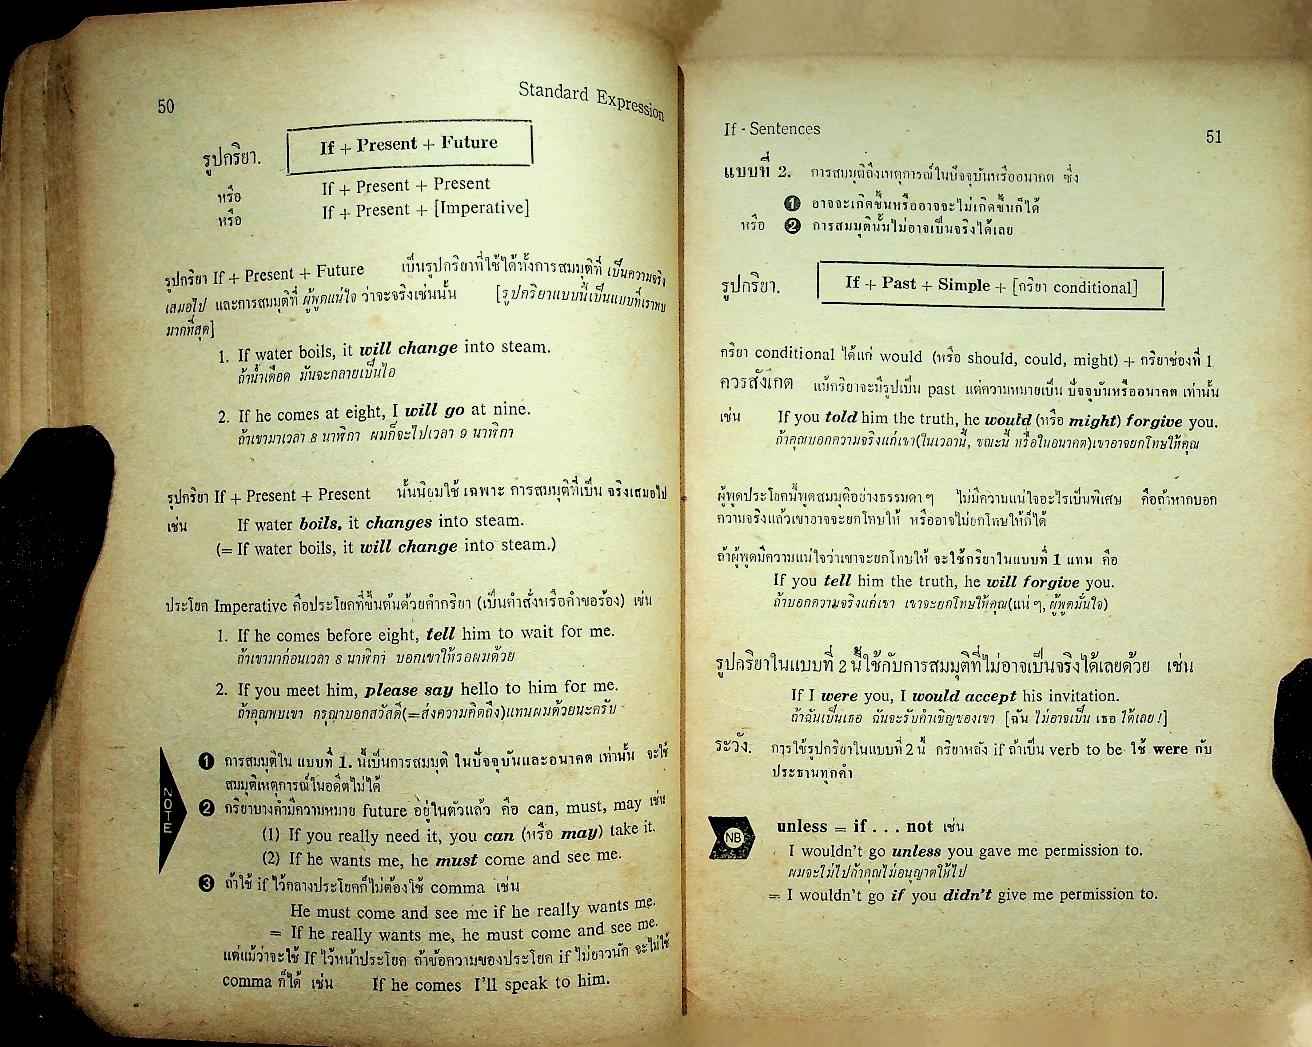 50
Standard Expression
รูปกริยา. If + Present + Future
หรือ If + Present + Present
หรือ If + Present + [Imperative]
รูปกริยา If + Present + Future เป็นรูปกริยาที่ใช้ได้ทั้งการสมมุติที่ เป็นความจริง
เสมอไป และการสมมุติที่ ผู้พูดแน่ใจ ว่าจะจริงเช่นนั้น [รูปกริยาแบบนี้เป็นแบบที่เราพบ
มากที่สุด]
1. If water boils, it will change into steam.
ถ้าน้ำเดือด มันจะกลายเป็นไอ
2. If he comes at eight, I will go at nine.
ถ้าเขามาเวลา ๘ นาฬิกา ผมก็จะไปเวลา ๙ นาฬิกา
รูปกริยา If + Present + Present นั้นนิยมใช้ เฉพาะ การสมมุติที่เป็น จริงเสมอไป
เช่น If water boils, it changes into steam.
(= If water boils, it will change into steam.)
ประโยค Imperative คือประโยคที่ขึ้นต้นด้วยคำกริยา (เป็นคำสั่งหรือคำขอร้อง) เช่น
1. If he comes before eight, tell him to wait for me.
ถ้าเขามาก่อนเวลา ๘ นาฬิกา บอกเขาให้รอผมด้วย
2. If you meet him, please say hello to him for me.
ถ้าคุณพบเขา กรุณาบอกสวัสดี(=ส่งความคิดถึง)แทนผมด้วยนะครับ
NOTE
❶ การสมมุติใน แบบที่ 1. นี้เป็นการสมมุติ ในปัจจุบันและอนาคต เท่านั้น จะใช้
สมมุติเหตุการณ์ในอดีตไม่ได้
❷ กริยาบางคำมีความหมาย future อยู่ในตัวแล้ว คือ can, must, may เช่น
(1) If you really need it, you can (หรือ may) take it.
(2) If he wants me, he must come and see me.
❸ ถ้าใช้ if ไว้กลางประโยคก็ไม่ต้องใช้ comma เช่น
He must come and see me if he really wants me.
= If he really wants me, he must come and see me.
แต่แม้ว่าจะใช้ If ไว้หน้าประโยค ถ้าข้อความของประโยค if ไม่ยาวนัก จะไม่ใช้
comma ก็ได้ เช่น If he comes I'll speak to him.
If - Sentences
51
แบบที่ 2. การสมมุติถึงเหตุการณ์ในปัจจุบันหรืออนาคต ซึ่ง
❶ อาจจะเกิดขึ้นหรืออาจจะไม่เกิดขึ้นก็ได้
หรือ ❷ การสมมุตินั้นไม่อาจเป็นจริงได้เลย
รูปกริยา. If + Past + Simple + [กริยา conditional]
กริยา conditional ได้แก่ would (หรือ should, could, might) + กริยาช่องที่ 1
ควรสังเกต แม้กริยาจะมีรูปเป็น past แต่ความหมายเป็น ปัจจุบันหรืออนาคต เท่านั้น
เช่น If you told him the truth, he would (หรือ might) forgive you.
ถ้าคุณบอกความจริงแก่เขา(ในเวลานี้, ขณะนี้ หรือในอนาคต)เขาอาจยกโทษให้คุณ
ผู้พูดประโยคนี้พูดสมมุติอย่างธรรมดา ๆ ไม่มีความแน่ใจอะไรเป็นพิเศษ คือถ้าหากบอก
ความจริงแล้วเขาอาจจะยกโทษให้ หรืออาจไม่ยกโทษให้ก็ได้
ถ้าผู้พูดมีความแน่ใจว่าเขาจะยกโทษให้ จะใช้กริยาในแบบที่ 1 แทน คือ
If you tell him the truth, he will forgive you.
ถ้าบอกความจริงแก่เขา เขาจะยกโทษให้คุณ(แน่ ๆ, ผู้พูดมั่นใจ)
รูปกริยาในแบบที่ 2 นี้ใช้กับการสมมุติที่ไม่อาจเป็นจริงได้เลยด้วย เช่น
If I were you, I would accept his invitation.
ถ้าฉันเป็นเธอ ฉันจะรับคำเชิญของเขา [ฉัน ไม่อาจเป็น เธอ ได้เลย!]
ระวัง. การใช้รูปกริยาในแบบที่ 2 นี้ กริยาหลัง if ถ้าเป็น verb to be ใช้ were กับ
ประธานทุกคำ
NB unless = if . . . not เช่น
I wouldn't go unless you gave me permission to.
ผมจะไม่ไปถ้าคุณไม่อนุญาตให้ไป
= I wouldn't go if you didn't give me permission to.